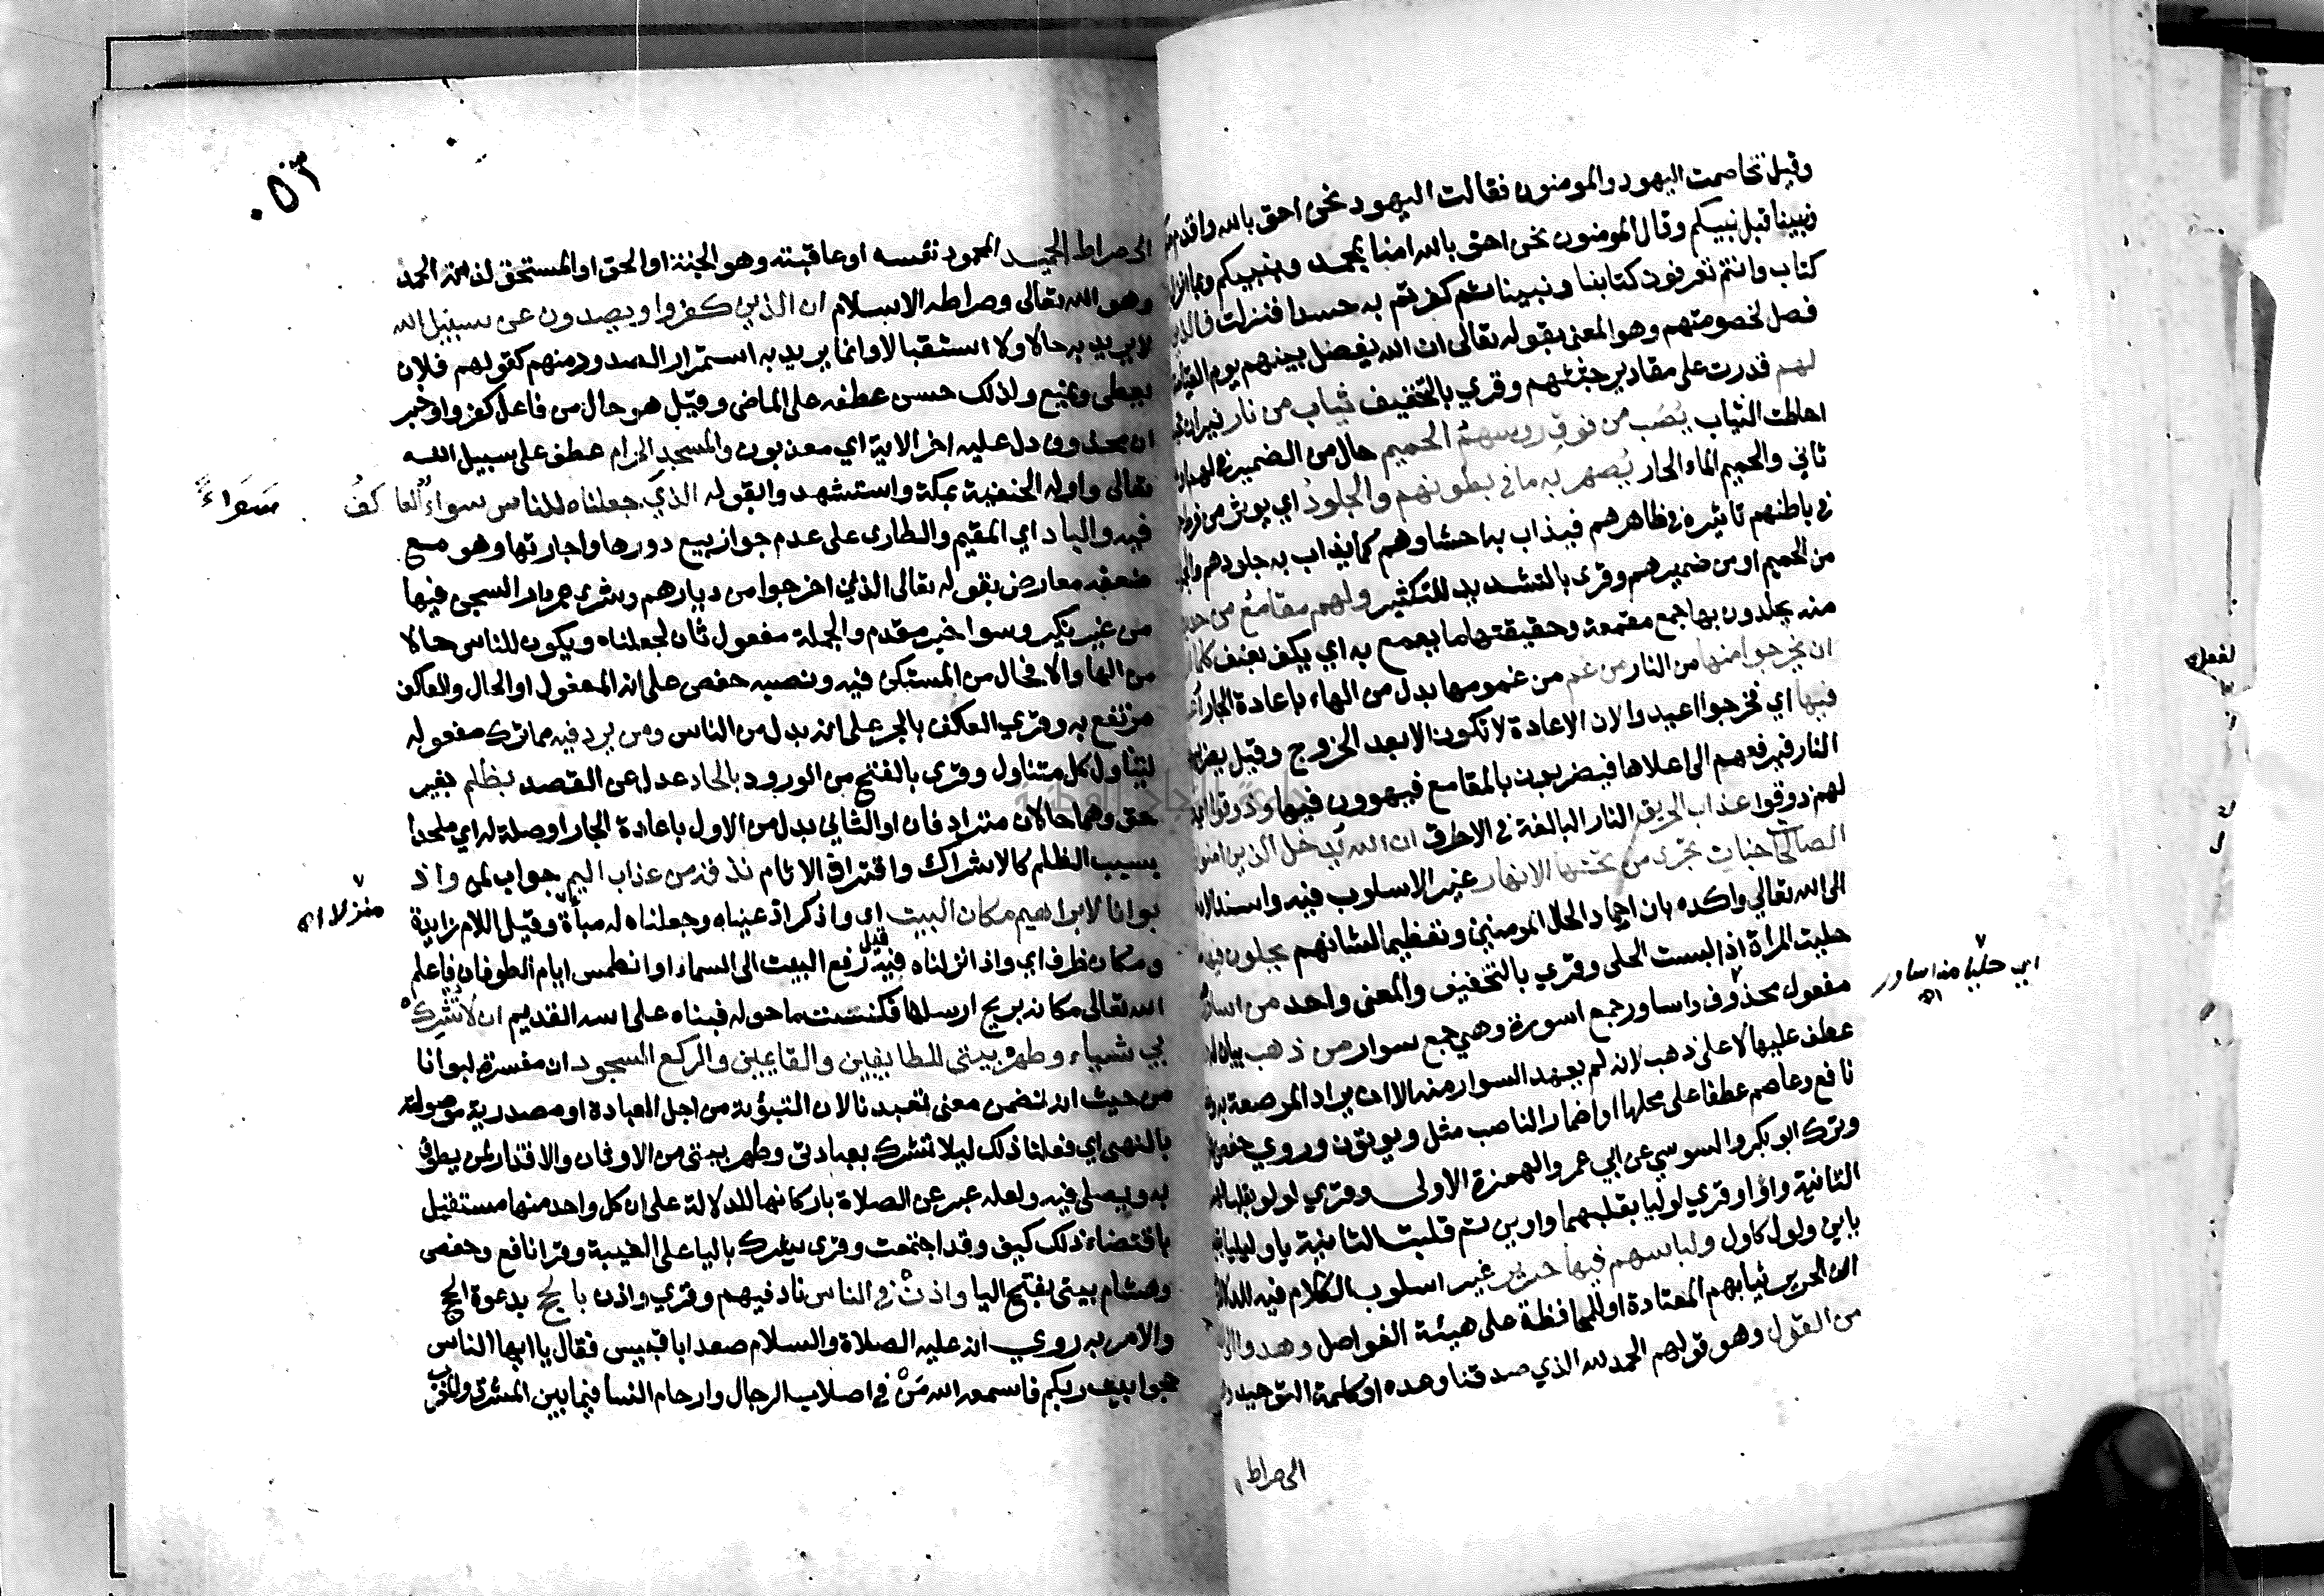 وقيل تخاصمت اليهود والمومنون فقالت اليهود نحن احق بالله واقدم
نبينا قبل نبيكم وقال المومنون نحن احق بالله امنا بمحمد وبنبيكم وبما انزل
كتاب وانتم تعرفون كتابنا ونبينا ثم كفرتم به حسدا فنزلت فالذين
فصل لخصومتهم وهو المعنى بقوله تعالى ان الله يفصل بينهم يوم القيامة
لهم قدرت على مقادير جثثهم وقري بالتخفيف ثياب من نار نيران
احاطت الثياب يُصَب من فوق روسهم الحميم حال من الضمير في لهم او
ثاني والحميم الماء الحار يُصهر به ما في بطونهم والجلودُ اي يوثر من فرط
في باطنهم تاثيره في ظاهرهم فيذاب به احشاوهم كما يذاب به جلودهم
من الحميم او من ضميرهم وقرى بالتشديد للتكثير ولهم مقامع من حديد
منه يجلدون بها جمع مقمعة وحقيقتها ما يقمع به اي يكف بعنف كلما
ان يخرجوا منها من النار من غم من غمومها بدل من الهاء باعادة الجار
فيها اي فخرجوا اعيدوا لان الاعادة لا تكون الا بعد الخروج وقيل
النار فيرفعهم الى اعلاها فيضربون بالمقامع فيهوون فيها وذوقوا
لهم ذوقوا عذاب الحريق النار البالغة في الاحراق ان الله يُدخل الذين امنوا
الصالحات جنات تجرى من تحتها الانهار غير الاسلوب فيه واسند
الى الله تعالي واكده بان احماد الحال المومنين وتعظيما لشانهم يحلون فيها
حليت المراة اذا لبست الحلى وقري بالتخفيف والمعنى واحد من اساور
مفعول محذوف واساور جمع اسورة وهي جمع سوار من ذهب بيان له
عطف عليها لا على ذهب لانه لم يعهد السوار منه الا ان يراد المرصعة به
نافع وعاصم عطفا على محلها او اضمار الناصب مثل ويوتون وروي حفص
وترك ابو بكر والسوسي عن ابي عمر والهمزة الاولى وقري لولو بقلب
الثانية واوا وقري لوليا بقلبهما واوين ثم قلبت الثانية يا وليليا
يايين ولول كاول ولباسهم فيها حرير غير اسلوب الكلام فيه للدلالة
ان الحرير ثيابهم المعتادة او للمحافظة على هيئة الفواصل وهدوا الى
من القول وهو قولهم الحمد لله الذي صدقنا وعده او كلمة التوحيد
اي حليا من اساور
الى صراط
٥٣
الى صراط الحميد المحمود نفسه او عاقبته وهو الجنة او الحق او المستحق لذاته الحمد
وهو الله تعالى وصراطه الاسلام ان الذين كفروا ويصدون عن سبيل الله
لا يريد به حالا ولا استقبالا وانما يريد به استمرار الصدود منهم كقولهم فلان
يعطى ويمنع ولذلك حسن عطفه على الماضى وقيل هو حال من فاعل كفروا وخبر
ان محذوف دل عليه اخر الاية اي معذبون والمسجد الحرام عطف على سبيل الله
تعالى واوله الحنفية بمكة واستشهدوا بقوله الذي جعلناه للناس سواءٌ العاكفُ
سَوَاءً
فيه والباد اي المقيم والطارى على عدم جواز بيع دورها واجارتها وهو مع
ضعفه معارض بقوله تعالى الذين اخرجوا من ديارهم وشرى عمر دار السجن فيها
من غير نكير وسوا خبر مقدم والجملة مفعول ثان لجعلناه ويكون للناس حالا
من الها والا فحال من المستكن فيه ونصبه حفص على انه المفعول او الحال والعاكف
مرتفع به وقري العاكف بالجر على انه بدل من الناس ومن يرد فيه مما ترك مفعوله
ليتناول كل متناول وقرى بالفتح من الورود بالحاد عدل عن القصد بظلم بغير
حق وهما حالان مترادفان او الثاني بدل من الاول باعادة الجار او صلة له اي ملحدا
بسبب الظلم كالاشراك واقتراف الاثام نذقه من عذاب اليم جواب لمن واذ
بوانا لابراهيم مكان البيت اي واذكر اذ عيناه وجعلناه له مبأة وقيل اللام زايدة
منزلا اي
ومكان ظرف اي واذ انزلناه فيه قيل رفع البيت الى السماء او انطمس ايام الطوفان فاعلم
الله تعالى مكانه بريح ارسلها فكنست ما حوله فبناه على اسه القديم ان لا تُشرك
بي شياء وطهر بيتى للطايفين والقايمين والركع السجود ان مفسرة لبوانا
من حيث انه تضمن معنى تعبدنا لان التبؤية من اجل العبادة او مصدرية موصولة
بالنهى اي فعلنا ذلك ليلا تشرك بعبادتى وطهر بيتى من الاوثان والاقذار لمن يطوف
به ويصلى فيه ولعله عبر عن الصلاة باركانها للدلالة على ان كل واحد منها مستقيل
باقتضاء ذلك كيف وقد اجتمعت وقرى يشرك باليا على الغيبة وقرا نافع وحفص
وهشام بيتى بفتح اليا واذنْ في الناس ناد فيهم وقري واذن بالحج بدعوة الحج
والامر به روي انه عليه الصلاة والسلام صعد ابا قبيس فقال يا ايها الناس
حجوا بيت ربكم فاسمعه الله مَنْ في اصلاب الرجال وارحام النسا فيما بين المشرق والمغرب